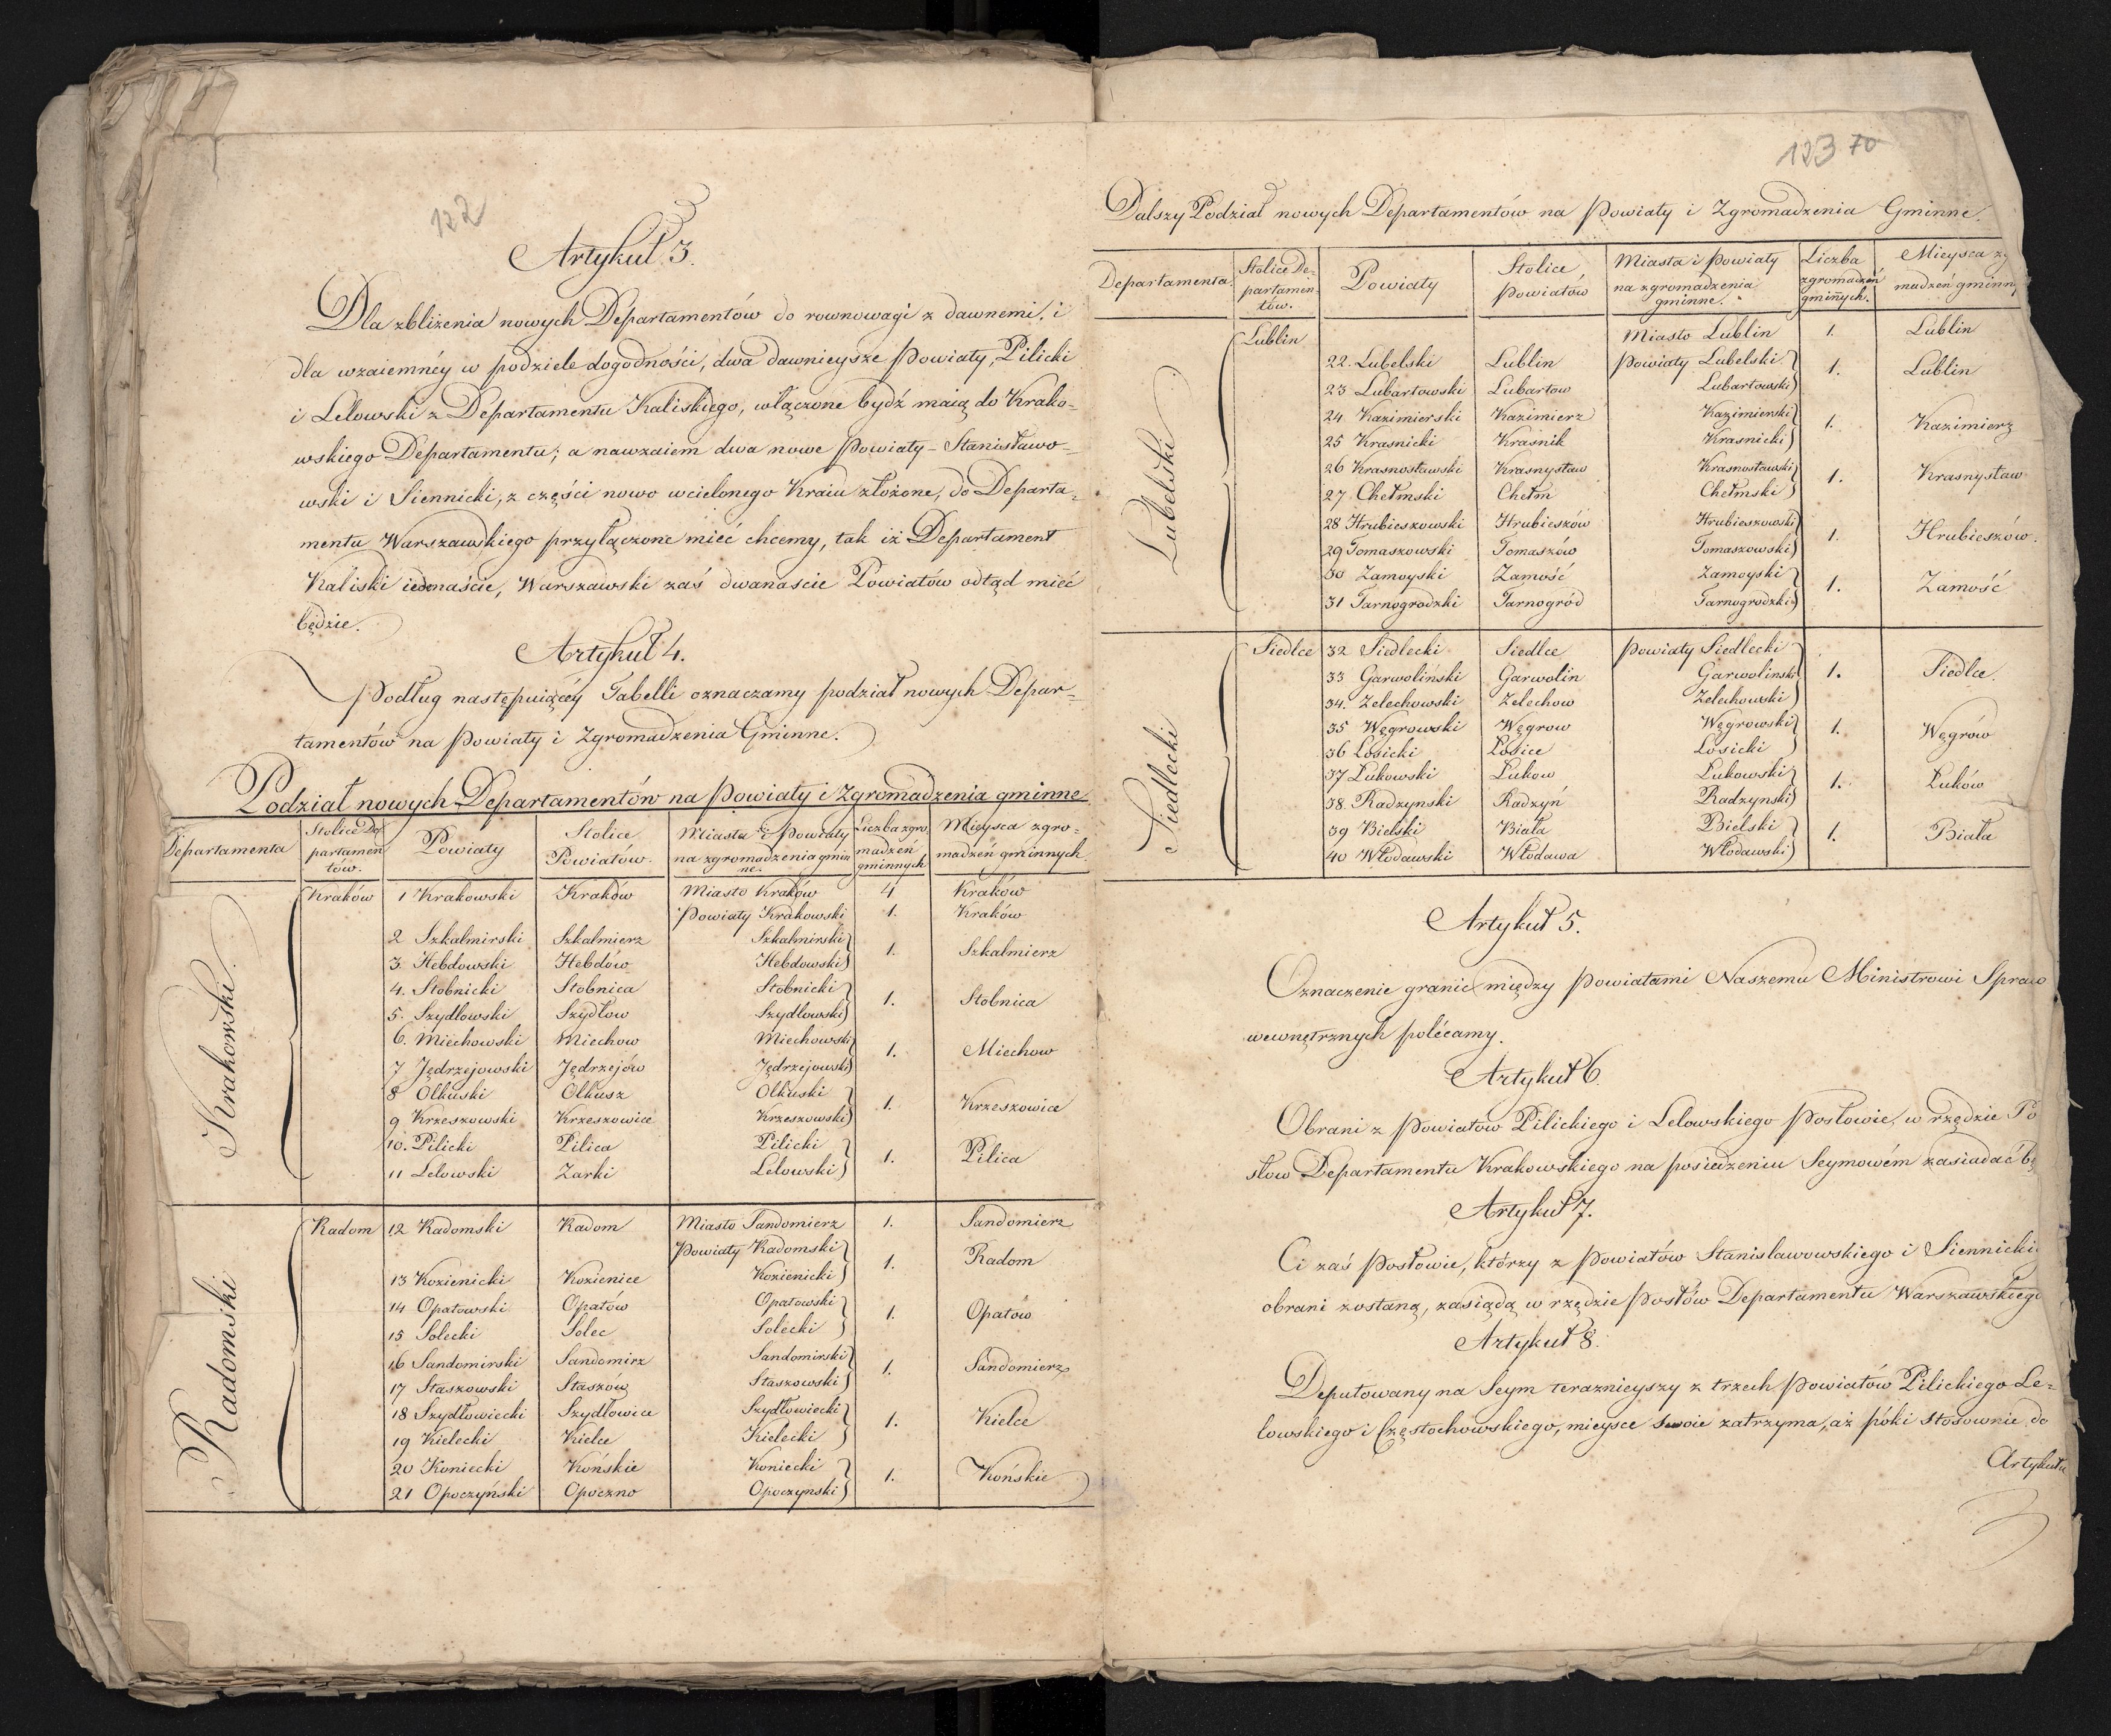 122
Artykuł 3.
Dla zbliżenia nowych Departamentów do rownowagi z dawnemi, i
dla wzaiemnéy w podziele dogodności, dwa dawnieysze Powiaty, Pilicki
i Lelowski z Departamentu Kaliskiego, włączone bydź maią do Krako-
wskiego Departamentu; a nawzaiem dwa nowe Powiaty - Stanisławo-
wski i Siennicki, z części nowo wcielonego Kraiu złożone, do Departa-
mentu Warszawskiego przyłączone mieć chcemy, tak iż Departament
Kaliski iedenaście, Warszawski zaś dwanaście Powiatów odtąd mieć
będzie.
Artykuł 4.
Podług następuiącéy Tabelli oznaczamy podział nowych Depar-
tamentów na Powiaty i Zgromadzenia Gminne.
Podział nowych Departamentów na Powiaty i Zgromadzenia gminne
Departamenta | Stolice De-partamentów. | Powiaty | Stolice Powiatów. | Miasta i Powiaty na zgromadzenia gminne. | Liczba zgromadzeń gminnych | Mieysca zgromadzeń gminnych
Krakowski. | Kraków | 1 Krakowski | Kraków | Miasto Kraków | 4 | Kraków
Powiaty Krakowski | 1. | Kraków
2 Szkalmirski | Szkalmierz | Szkalmirski | 1. | Szkalmierz
3. Hebdowski | Hebdów | Hebdowski
4. Stobnicki | Stobnica | Stobnicki | 1. | Stobnica
5. Szydłowski | Szydłow | Szydlowski
6. Miechowski | Miechow | Miechowski | 1. | Miechow
7 Jędrzejowski | Jędrzejów | Jędrzejowski
8 Olkuski | Olkusz | Olkuski | 1. | Krzeszowice
9 Krzeszowski | Krzeszowice | Krzeszowski
10. Pilicki | Pilica | Pilicki | 1. | Pilica
11 Lelowski | Zarki | Lelowski
Radomski | Radom | 12 Radomski | Radom | Miasto Sandomierz | 1. | Sandomierz
Powiaty Radomski | 1. | Radom
13 Kozienicki | Kozienice | Kozienicki
14 Opatowski | Opatów | Opatowski | 1. | Opatów
15 Solecki | Solec | Solecki
16 Sandomirski | Sandomirz | Sandomirski | 1. | Sandomierz
17 Staszowski | Staszów | Staszowski
18 Szydłowiecki | Szydlowice | Szydłowiecki | 1. | Kielce
19 Kielecki | Kielce | Kielecki
20 Koniecki | Końskie | Koniecki | 1. | Końskie
21 Opoczyński | Opoczno | Opoczynski
123 70
Dalszy Podział nowych Departamentów na Powiaty i Zgromadzenia Gminne.
Departamenta. | Stolice De-partamentów. | Powiaty | Stolice Powiatów | Miasta i Powiaty na zgromadzenia gminne. | Liczba zgromadzeń gminnych. | Mieysca zg madzeń gminn
Lubelski. | Lublin | Miasto Lublin | 1. | Lublin
22. Lubelski | Lublin | Powiaty Lubelski | 1. | Lublin
23 Lubartowski | Lubartow | Lubartowski
24 Kazimierski | Kazimierz | Kazimierski | 1. | Kazimierz
25 Krasnicki | Krasnik | Krasnicki
26 Krasnosławski | Krasnystaw | Krasnostawski | 1. | Krasnystaw
27 Chełmski | Chełm | Chełmski
28 Hrubieszowski | Hrubieszów | Hrubieszowski | 1. | Hrubieszów.
29 Tomaszowski | Tomaszów | Tomaszowski
30 Zamoyski | Zamość | Zamoyski | 1. | Zamość
31 Tarnogrodzki | Tarnogród | Tarnogrodzki
Siedlecki | Siedlce | 32 Siedlecki | Siedlce | Powiaty Siedlecki | 1. | Siedlce.
33 Garwoliński | Garwolin | Garwoliński
34. Zelechowski | Zelechow | Zelechowski
35 Węgrowski | Węgrow | Węgrowski | 1. | Węgrów
36 Łosicki | Łosice | Losicki
37 Łukowski | Łukow | Łukowski | 1. | Łuków
38. Radzynski | Radzyń | Radzynski
39 Bielski | Biała | Bielski | 1. | Biała
40 Włodawski | Włodawa | Włodawski
Artykuł 5.
Oznaczenie granic między Powiatami Naszemu Ministrowi Spraw
wewnętrznych polécamy.
Artykuł 6.
Obrani z Powiatów Pilickiego i Lelowskiego Posłowie, w rzędzie Po
słow Departamentu Krakowskiego na posiedzeniu Seymowém zasiadać bę
Artykuł 7.
Ci zaś Posłowie, którzy z Powiatów Stanisławowskiego i Siennicki
obrani zostaną, zasiądą w rzędzie Posłów Departamentu Warszawskiego
Artykuł 8.
Deputowany na Seym teraznieyszy z trzech Powiatów Pilickiego Le-
lowskiego i Częstochowskiego, mieysce swoie zatrzyma, aż póki stosownie do
Artykułu